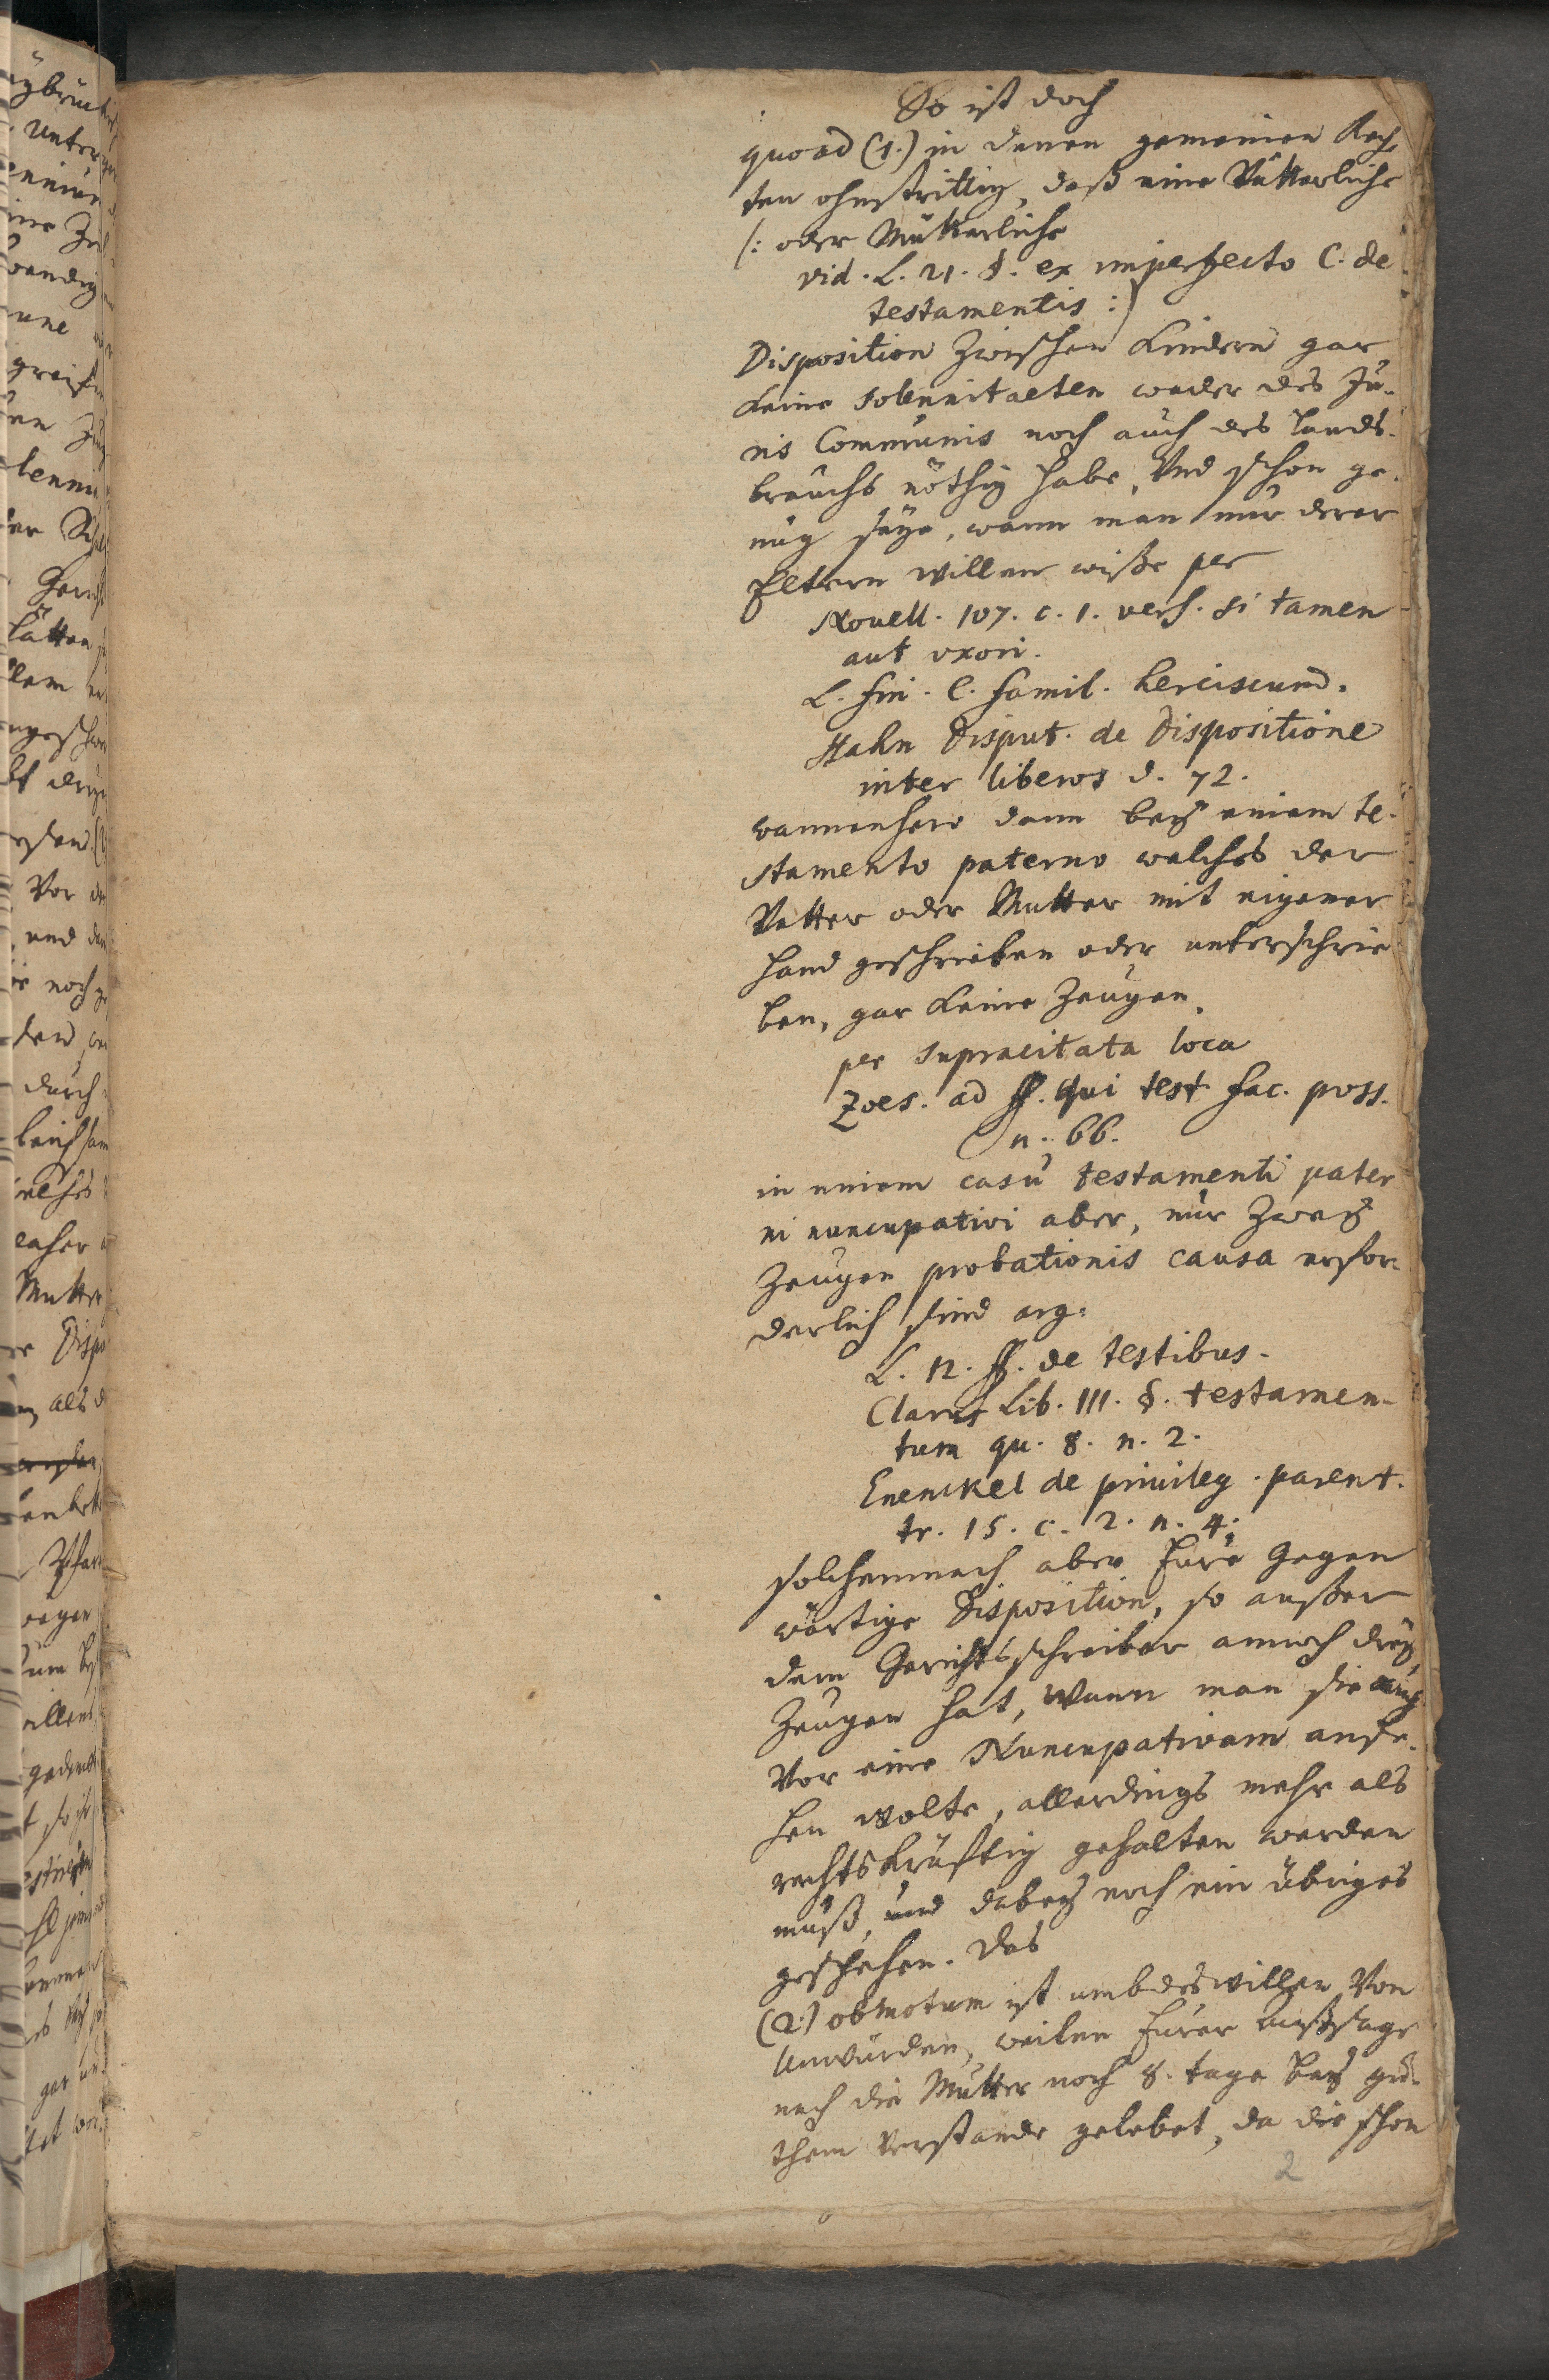 So ist doch
quoad (1.) in denen gemeinen Rech-
ten ohnstrittig, daß eine Vätterliche
/: oder Mütterliche
vid. L. 21. §. ex imperfecto C. de
testamentis :/
Disposition zwischen Kindern gar
keine solennitaeten weder des Ju-
ris Communis noch auch des Lands-
brauchs nöthig habe, Und schon ge-
nug seye, wann man nur derer
Eltern Willen wiße per
Novell. 107. c. 1. vers. si tamen
aut uxori.
L. fin. C. famil. herciscund.
Hahn Disput. de Dispositione
inter liberos d. 72.
wannenhero dann bey einem te-
stamento paterno welches der
Vatter oder Mutter mit eigener
Hand geschrieben oder unterschrie
ben, gar keine Zeugen,
per supracitata loca
Zoes. ad ff. Qui test fac. poss.
n. 66.
in einem casu testamenti pater
ni nuncupativi aber, nur zwey
Zeugen probationis causa erfor-
derlich sind arg.
L. 12. ff. de testibus.
Clarus Lib. III. §. testamen-
tum qu. 8. n. 2.
Enenckel de privileg. parent.
tr. 15. c. 2. n. 4.
solchemnach aber hure Gegen
wärtige Disposition, so außer
dem Gerichtsschreiber annoch drey
Zeugen hat, Wann man sie auch
Vor eine Nuncupativam anse-
hen wolte, allerdings mehr als
rechtskräfftig gehalten werden
muß, und dabey noch ein übriges
geschehen. Das
(2.) obmotum ist umbdeswillen Von
Unwürden, weilen hurer Außsage
nach die Mutter noch 8. tage bey gu-
them Verstande gelebet, da die schon
2